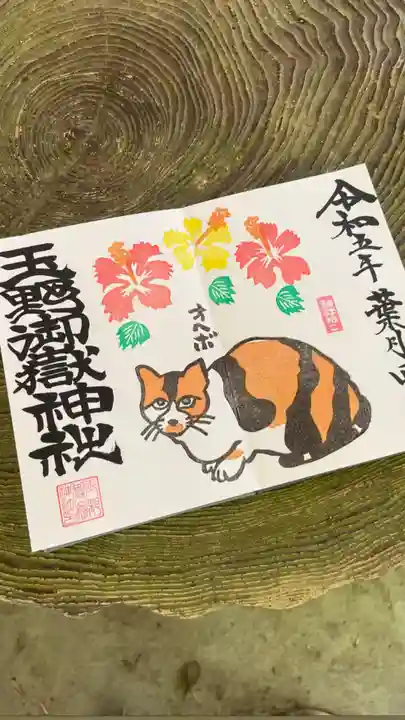 令和五年 葉月
オヘボ
玉野御嶽神社